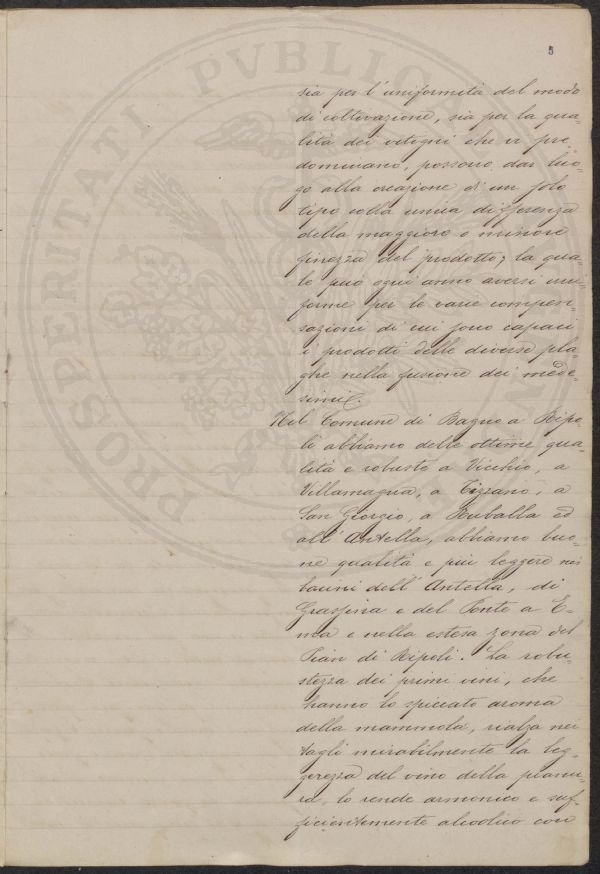 PROSPERITATI PVBLICAE
5
sia per l'uniformità del modo
di coltivazione, sia per la qua-
lità dei vitigni che vi pre-
dominano, possono dar luo-
go alla creazione d'un solo
tipo colla unica differenza
della maggiore o minore
finezza del prodotto; la qua-
le può ogni anno aversi uni-
forme per le varie compen-
sazioni di cui sono capaci
i prodotti delle diverse pla-
ghe nella fusione dei mede-
simi.
Nel Comune di Bagno a Ripo
li abbiamo delle ottime qua-
lità e robuste a Vicchio, a
Villamagna, a Tizzano, a
San Giorgio, a Ruballa ed
all'Antella, abbiamo buo-
ne qualità e più leggere nei
bacini dell'Antella, di
Grassina e del Ponte a E-
ma e nella estesa zona del
Pian di Ripoli. La robu-
stezza dei primi vini, che
hanno lo spiccato aroma
della mammola, rialza nei
tagli mirabilmente la leg-
gerezza del vino della pianu-
ra, lo rende armonico e suf-
ficientemente alcoolico con